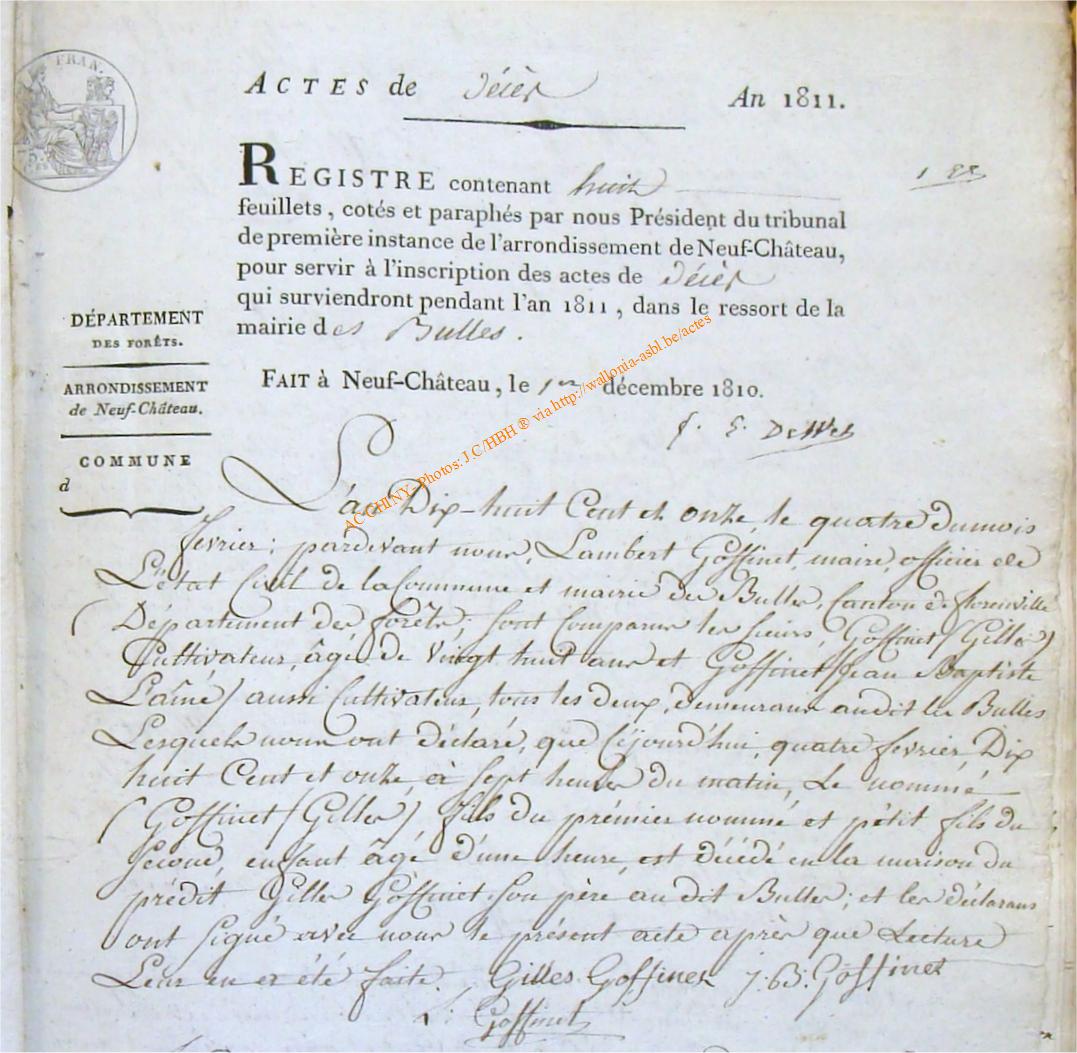 FRAN.
ACTES de décès An 1811.
REGISTRE contenant huit
feuillets, cotés et paraphés par nous Président du tribunal
de première instance de l'arrondissement de Neuf-Château,
pour servir à l'inscription des actes de décès
qui surviendront pendant l'an 1811, dans le ressort de la
mairie des Bulles.
FAIT à Neuf-Château, le 1er décembre 1810.
DÉPARTEMENT
DES FORÊTS.
ARRONDISSEMENT
de Neuf-Château.
COMMUNE
d
ACCHINY-Photos: J.C/HBH ® via http://wallonia-asbl.be/actes
L'an Dix-huit Cent et onze, le quatre du mois
fevrier; pardevant nous, Lambert Goffinet, maire, officier de
L'état Civil de la Commune et mairie des Bulles, Canton de florenville
Département des forêts; sont Comparus les sieurs, Goffinet (Gilles)
Cultivateur, âgé de vingt huit ans et Goffinet (Jean Baptiste
L'aîné) aussi Cultivateur, tous les deux, demeurans audit les Bulles
Lesquels nous ont déclaré, que Cejourd'hui, quatre fevrier, Dix
huit Cent et onze, à sept heures du matin, Le nommé
Goffinet (Gilles), fils du prémier nommé et pétit fils du
second, enfant âgé d'une heure, est décédé en la maison du
prédit Gilles Goffinet son père au dit Bulles; et les déclarans
ont signé avec nous le présent acte après que Lecture
Leur en a été faite. Gilles Goffinet J.B. Goffinet
L. Goffinet